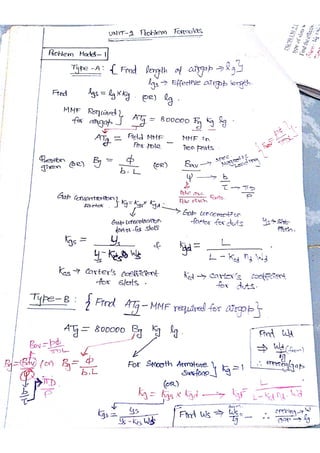 UNIT-2 Problem Formulas
Problem Model-1
Type-A: { Find length of airgap → lg }
lgs → Effective airgap length
Find lgs = lg × kg (OR) lg.
MMF Required for airgap } ATg = 800000 Bg Kg lg
ATg = Field MMF per Pole - MMF in Iron parts
given (OR) Bg = Φ / b.L (OR) Bav → Specific Magnetic Loading
Ψ → b/τ → πD/P
Pole arc / Pole Pitch
Gap Contraction Factor } Kg = Kgs × Kgd
Gap Contraction factor for slots
Gap Contraction factor for ducts
ys → Slot Pitch.
Kgs = ys / ys - Kcs Ws & Kgd = L / L - Kcd nd Wd
Kcs → Carter's coefficient for slots.
Kcd → Carter's coefficient for ducts.
Type-B: { Find ATg - MMF required for airgap }
ATg = 800000 Bg Kg lg
Find Wd
Bg = Bav/Ψ (or) Bg = Φ / b.L
For Smooth Armature Surface } Kg = 1
(OR)
Kg = Kgs × Kgd → Kgd = L / L - Kcd nd Wd
b/τ πD/P
Kgs = ys / ys - Kcs Ws
Find Ws ⇒ Ws/lg = — ∴ opening → Ws gap → lg